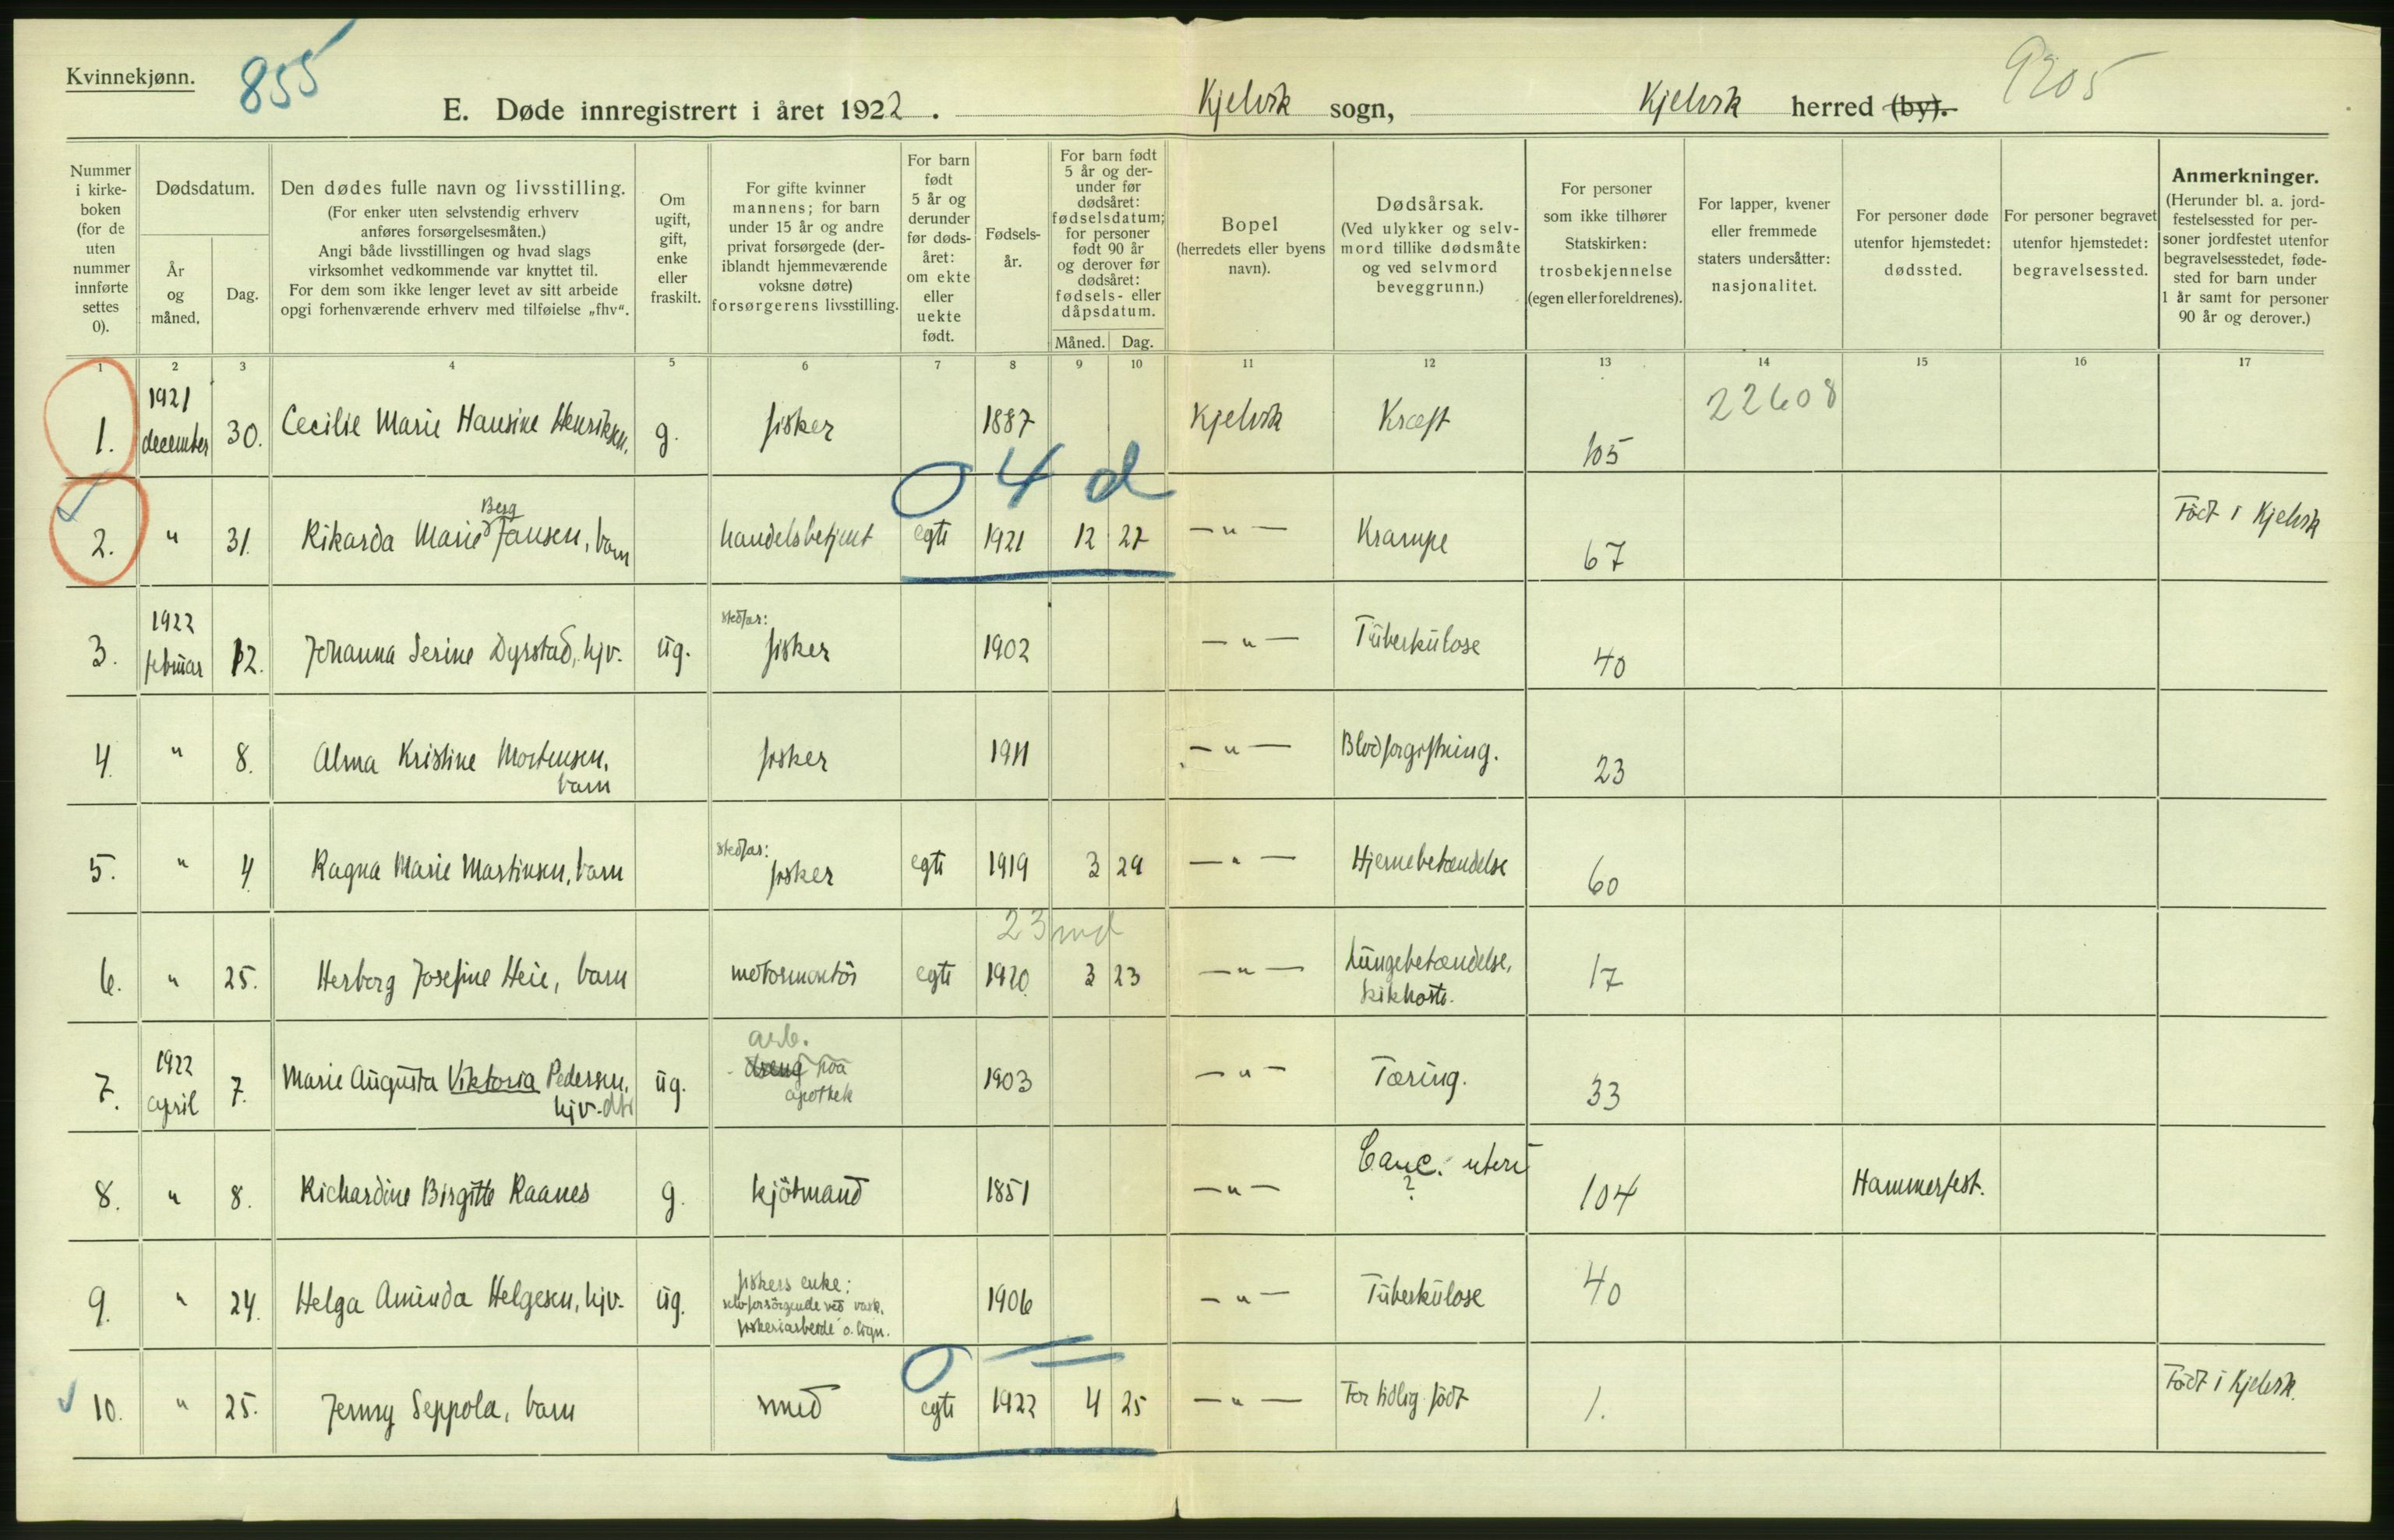 Kvinnekjønn.
855
9205
E. Døde innregistrert i året 1922. Kjelvik sogn, Kjelvik herred (by).
Nummer
i kirke-
boken
(for de
uten
nummer
innførte
settes
0).
Dødsdatum.
År
og
måned.
Dag.
Den dødes fulle navn og livsstilling.
(For enker uten selvstendig erhverv
anføres forsørgelsesmåten.)
Angi både livsstillingen og hvad slags
virksomhet vedkommende var knyttet til.
For dem som ikke lenger levet av sitt arbeide
opgi forhenværende erhverv med tilføielse „fhv“.
Om
ugift,
gift,
enke
eller
fraskilt.
For gifte kvinner
mannens; for barn
under 15 år og andre
privat forsørgede (der-
iblandt hjemmeværende
voksne døtre)
forsørgerens livsstilling.
For barn
født
5 år og
derunder
før døds-
året:
om ekte
eller
uekte
født.
Fødsels-
år.
For barn født
5 år og der-
under før
dødsåret:
fødselsdatum;
for personer
født 90 år
og derover før
dødsåret:
fødsels- eller
dåpsdatum.
Måned. Dag.
Bopel
(herredets eller byens
navn).
Dødsårsak.
(Ved ulykker og selv-
mord tillike dødsmåte
og ved selvmord
beveggrunn.)
For personer
som ikke tilhører
Statskirken:
trosbekjennelse
(egen eller foreldrenes).
For lapper, kvener
eller fremmede
staters undersåtter:
nasjonalitet.
For personer døde
utenfor hjemstedet:
dødssted.
For personer begravet
utenfor hjemstedet:
begravelsessted.
Anmerkninger.
(Herunder bl. a. jord-
festelsessted for per-
soner jordfestet utenfor
begravelsesstedet, føde-
sted for barn under
1 år samt for personer
90 år og derover.)
1 2 3 4 5 6 7 8 9 10 11 12 13 14 15 16 17
1. 1921 december 30. Cecilie Marie Hansine Henriksen, g. fisker 1887 Kjelvik Kræft 105 22608
0 4 d
2. " 31. Rikarda Marie Berg Jansen, barn handelsbetjent egte 1921 12 27 — " — Krampe 67 Født i Kjelvik
3. 1922 februar 12. Johanna Serine Dyrstad, hjv. ug. stedfar: fisker 1902 — " — Tuberkulose 40
4. " 8. Alma Kristine Mortensen, barn fisker 1911 — " — Blodforgiftning. 23
5. " 4. Ragna Marie Martinsen, barn stedfar: fisker egte 1919 3 29 — " — Hjernebetændelse 60
23 md
6. " 25. Herborg Josefine Heie, barn motormontör egte 1920 3 23 — " — Lungebetændelse, kikhoste. 17
7. 1922 april 7. Marie Augusta Viktoria Pedersen, hjv. dtr ug. arb. dreng paa apothek 1903 — " — Tæring. 33
8. " 8. Richardine Birgitte Raanes g. kjötmand 1851 — " — Canc. uteri ? 104 Hammerfest.
9. " 24. Helga Aminda Helgesen, hjv. ug. fiskers enke: selvforsörgende ved vask, fiskeriarbeide o. lign. 1906 — " — Tuberkulose 40
0
10. " 25. Jenny Seppola, barn smed egte 1922 4 25 — " — For tidlig født 1. Født i Kjelvik.